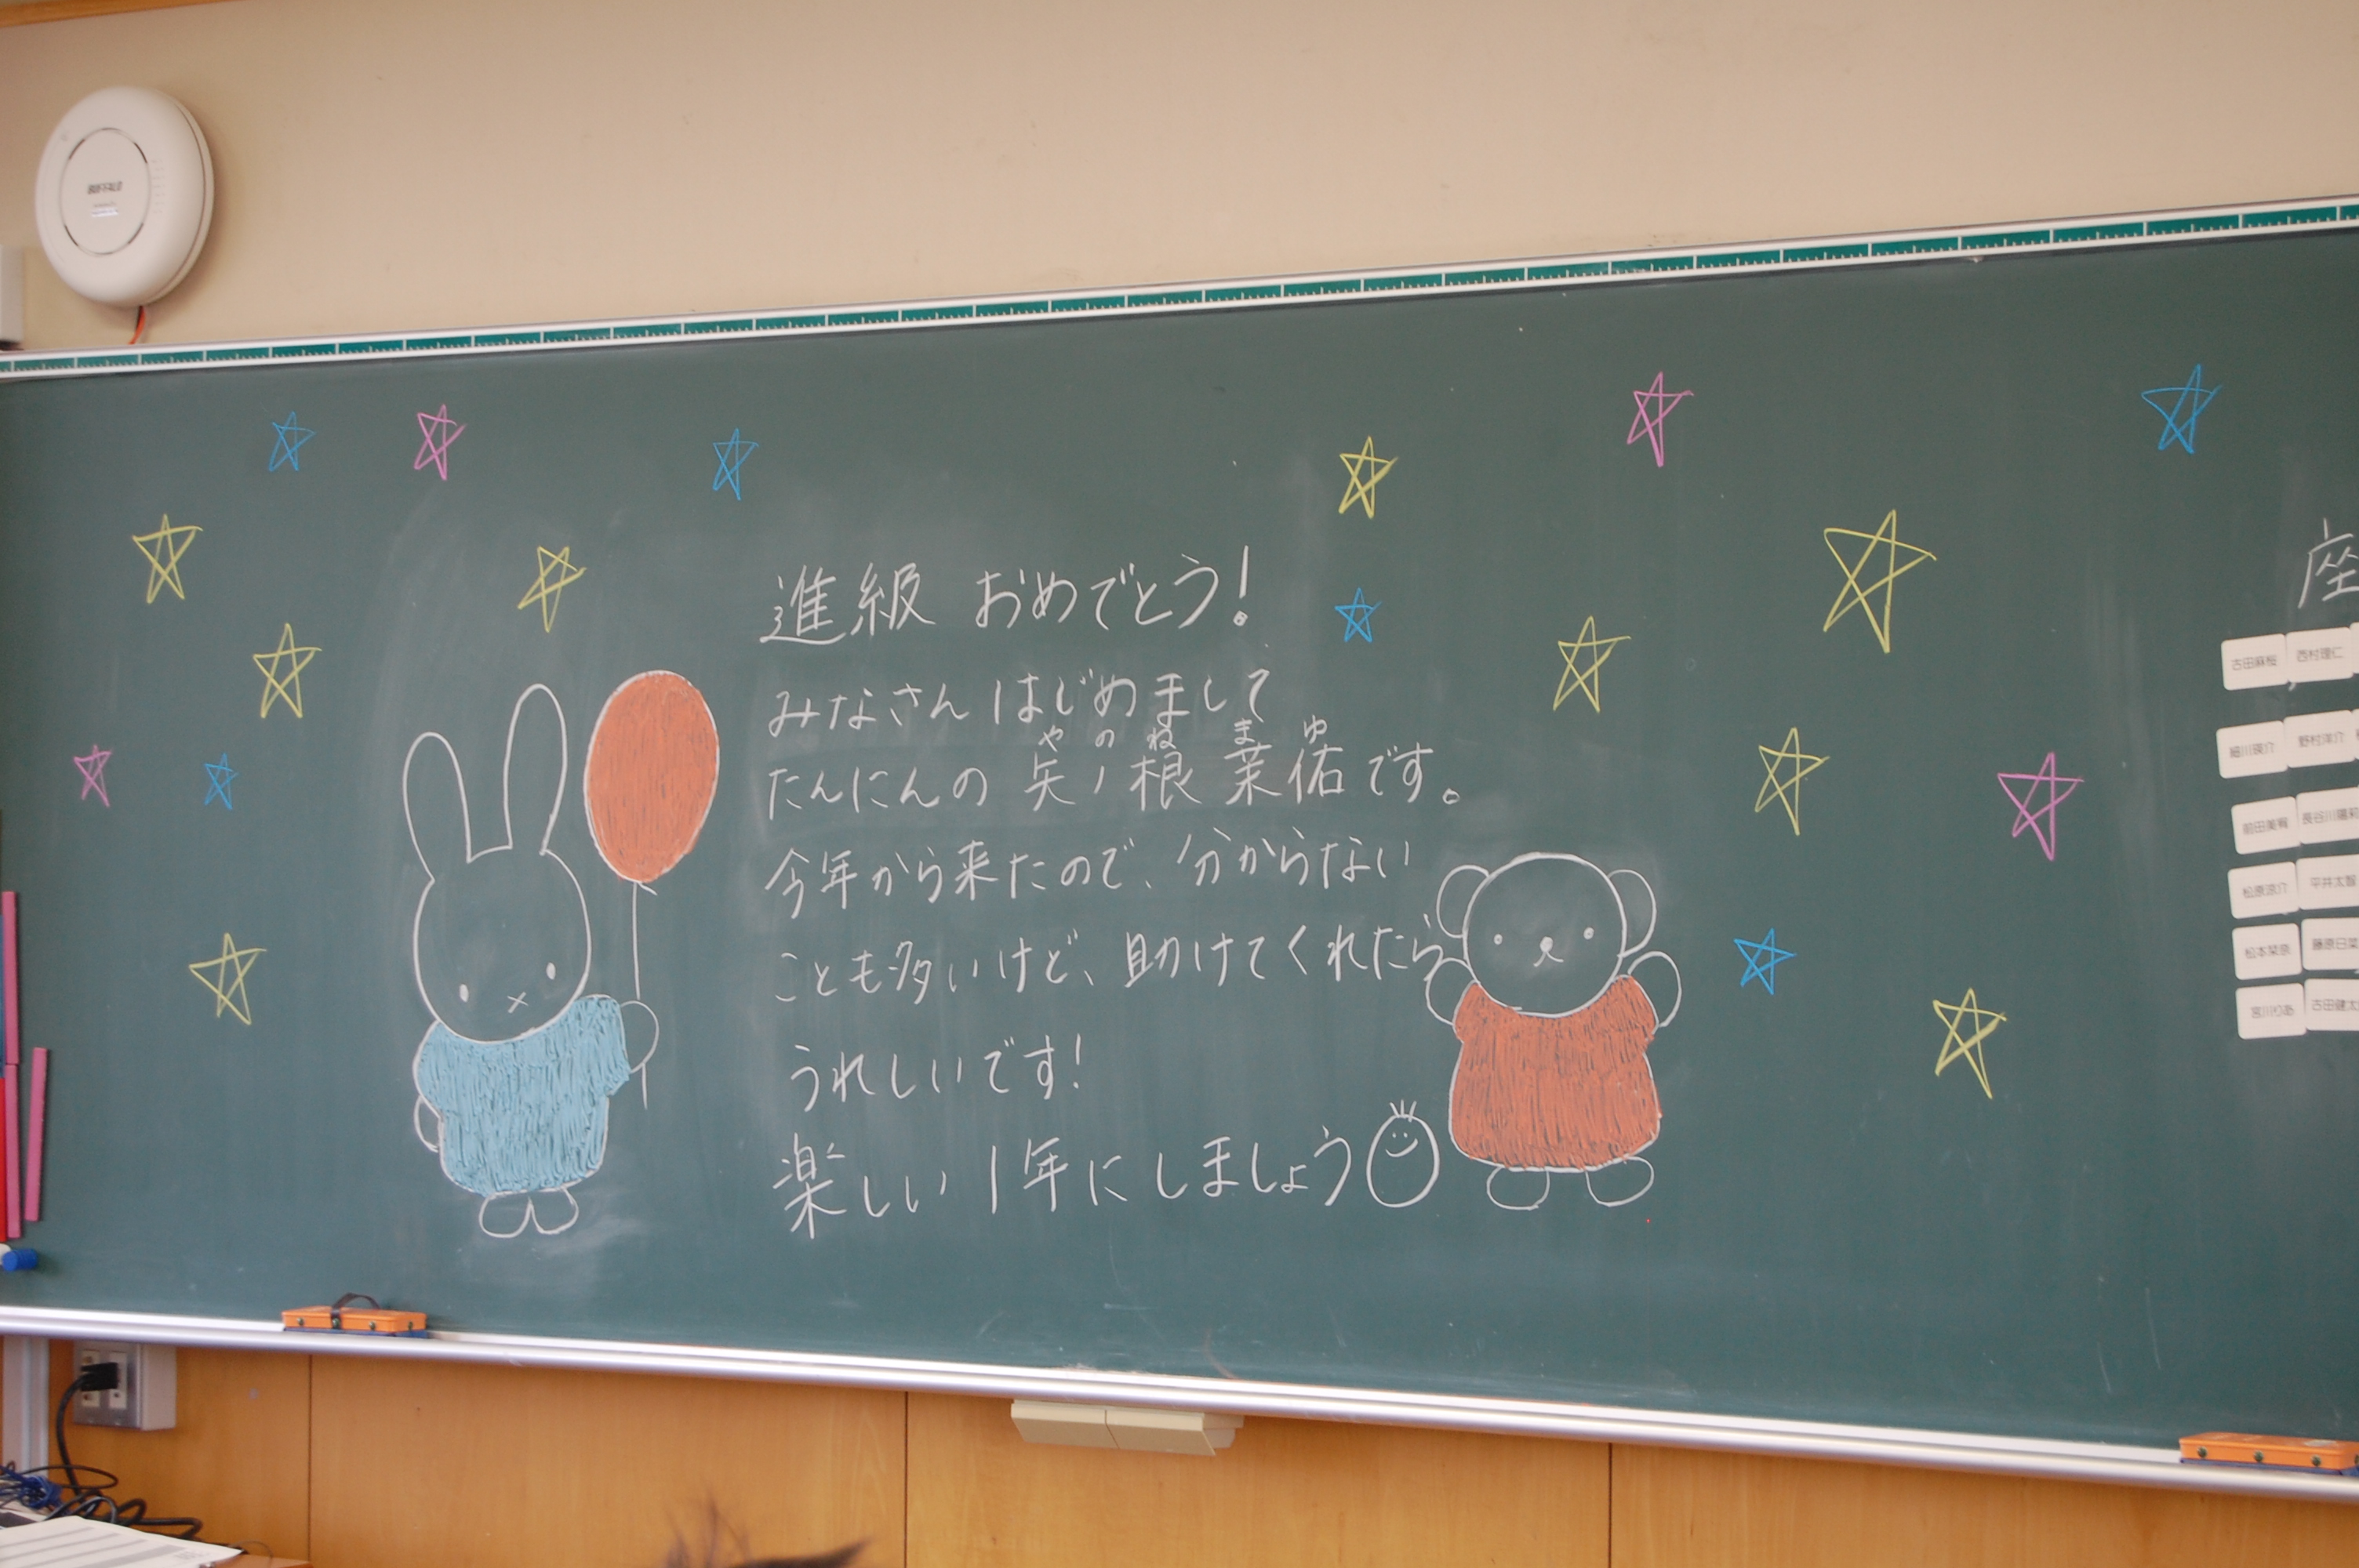 進級 おめでとう!
みなさん はじめまして
や の ね ま ゆ
たんにんの 矢ノ根 茉佑です。
今年から来たので、分からない
ことも多いけど、助けてくれたら
うれしいです!
楽しい1年にしましょう
座
古田麻桜 西村理仁
細川瑛介 野村洋介
前田美賀 長谷川陽莉
松原涼介 平井太智
松本栞奈 藤原日菜
宮川りあ 古田健太